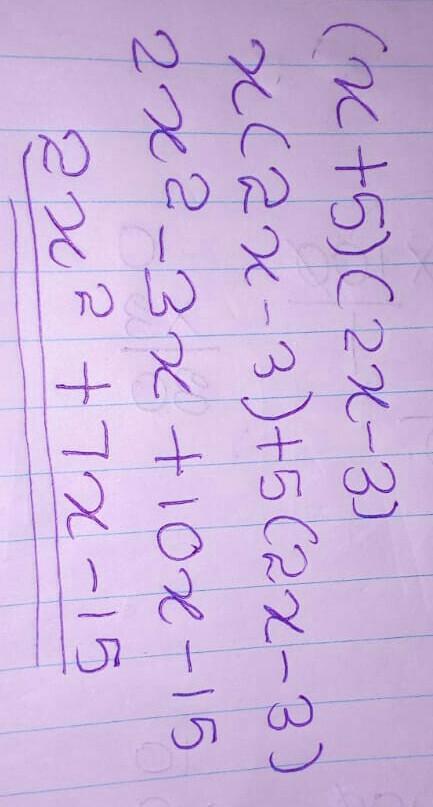 (x+5)(2x-3)
x(2x-3)+5(2x-3)
2x2-3x+10x-15
2x²+7x-15